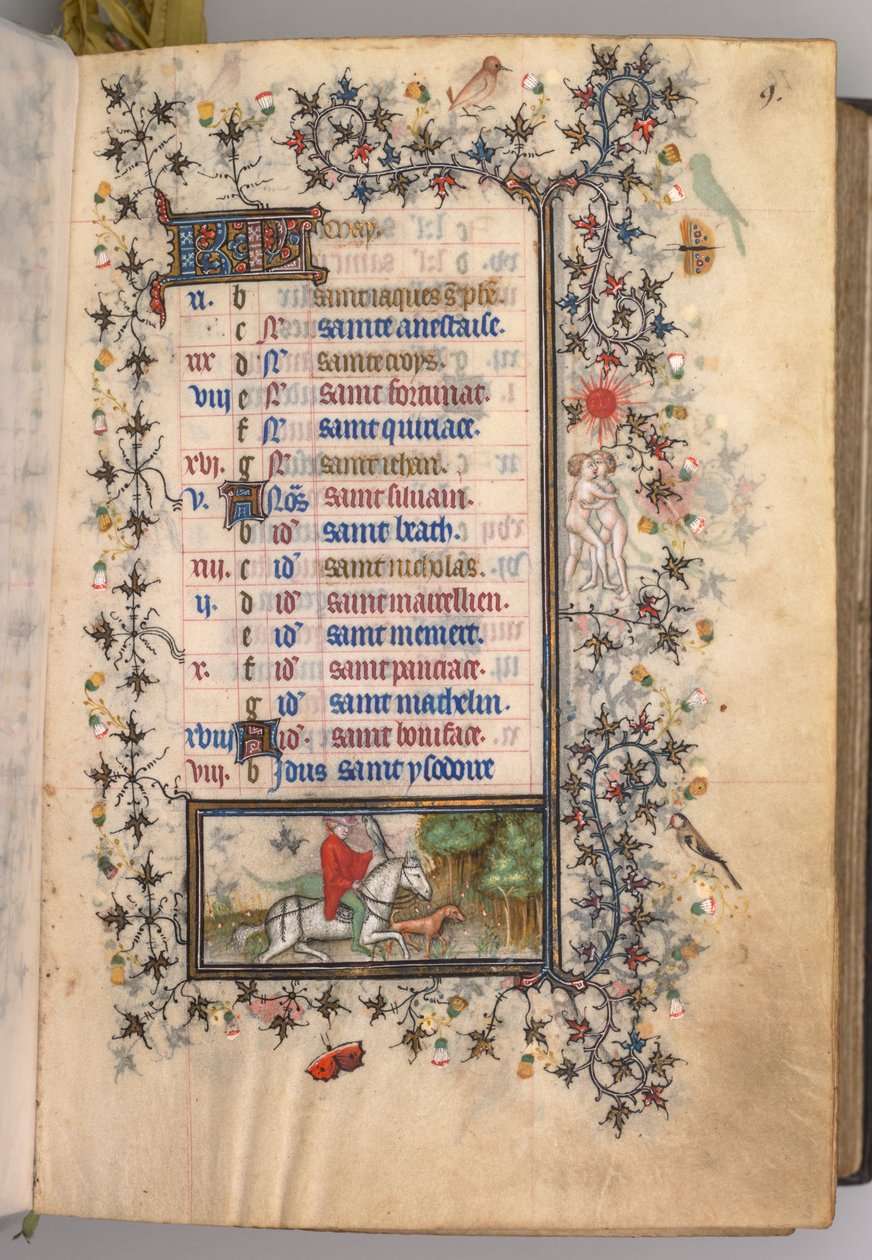 9.
KL May.
xi. b saint iaques s. phe.
c N sainte anestaise.
xix d N sainte crois.
viii e N saint fortunat.
f N saint quiriace.
xvi. g N saint iehan.
v. A Nōs saint siluain.
b id saint beath.
xiii. c id saint nicholas.
ii. d id saint maxellien.
e id saint memert.
x. f id saint pancrace.
g id saint mathelin.
xviii A id. saint boniface.
viii. b Idus saint ysodore